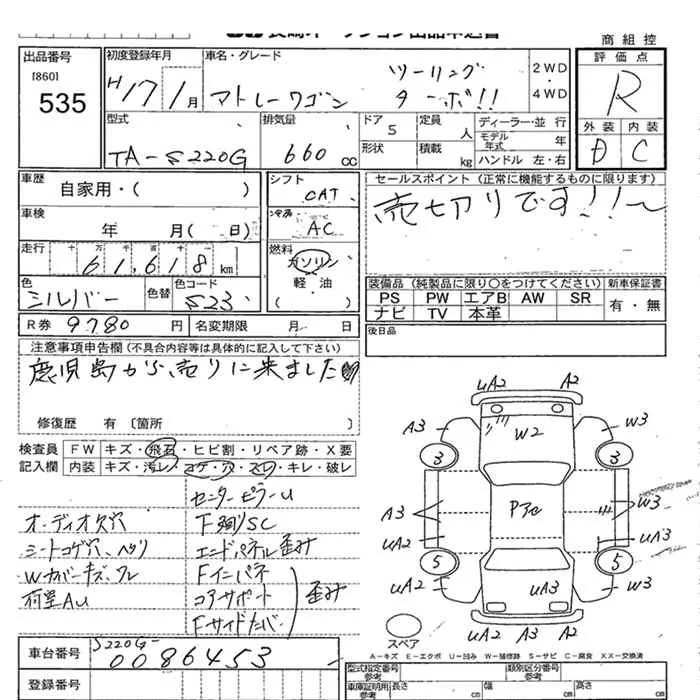 商組控
出品番号
[860]
535
初度登録年月
H17年1月
車名・グレード
アトレーワゴン
ツーリング
ターボ!!
2WD・4WD
評価点
R
外装 内装
D C
型式
TA-S220G
排気量
660cc
ドア
5
形状
定員 人
積載 kg
ディーラー・並行
モデル年式 年
ハンドル 左・右
車歴
自家用・( )
車検
年 月( 日)
走行
十 万 千 百 十 一
61,618 km
シフト
CAT
冷房
AC
燃料
ガソリン
軽油
( )
セールスポイント(正常に機能するものに限ります)
売切りです!!~
色
シルバー
色替
色コード
S23
装備品(純製品に限り○をつけてください)
PS PW エアB AW SR
ナビ TV 本革
新車保証書
有・無
R券 9780 円
名変期限 月 日
後日品
注意事項申告欄(不具合内容等は具体的に記入して下さい)
鹿児島から売りに来ました
修復歴 有 〔箇所 〕
検査員記入欄
FW キズ・飛石・ヒビ割・リペア跡・X要
内装 キズ・汚レ・コゲ・穴・スレ・キレ・破レ
センターピラーU
オーディオ欠穴
シートコゲ穴、ヘタリ
Wカバーキズ、ワレ
荷室AU
F廻りSC
エンドパネル歪み
Fインパネ
コアサポート
Fサイドメンバー
歪み
UA2 A2
A3 W2 W3
3 3
A3 W3
UA2 UA3
5 5
UA2 UA3 W3
UA2 A3 UA2
スペア
A-キズ E-エクボ U-凹み W-補修跡 S-サビ C-腐食 XX-交換済
車台番号
S220G-
0086453
登録番号
型式指定番号
参考
類別区分番号
参考
車庫証明用
参考
長さ cm
幅 cm
高さ cm